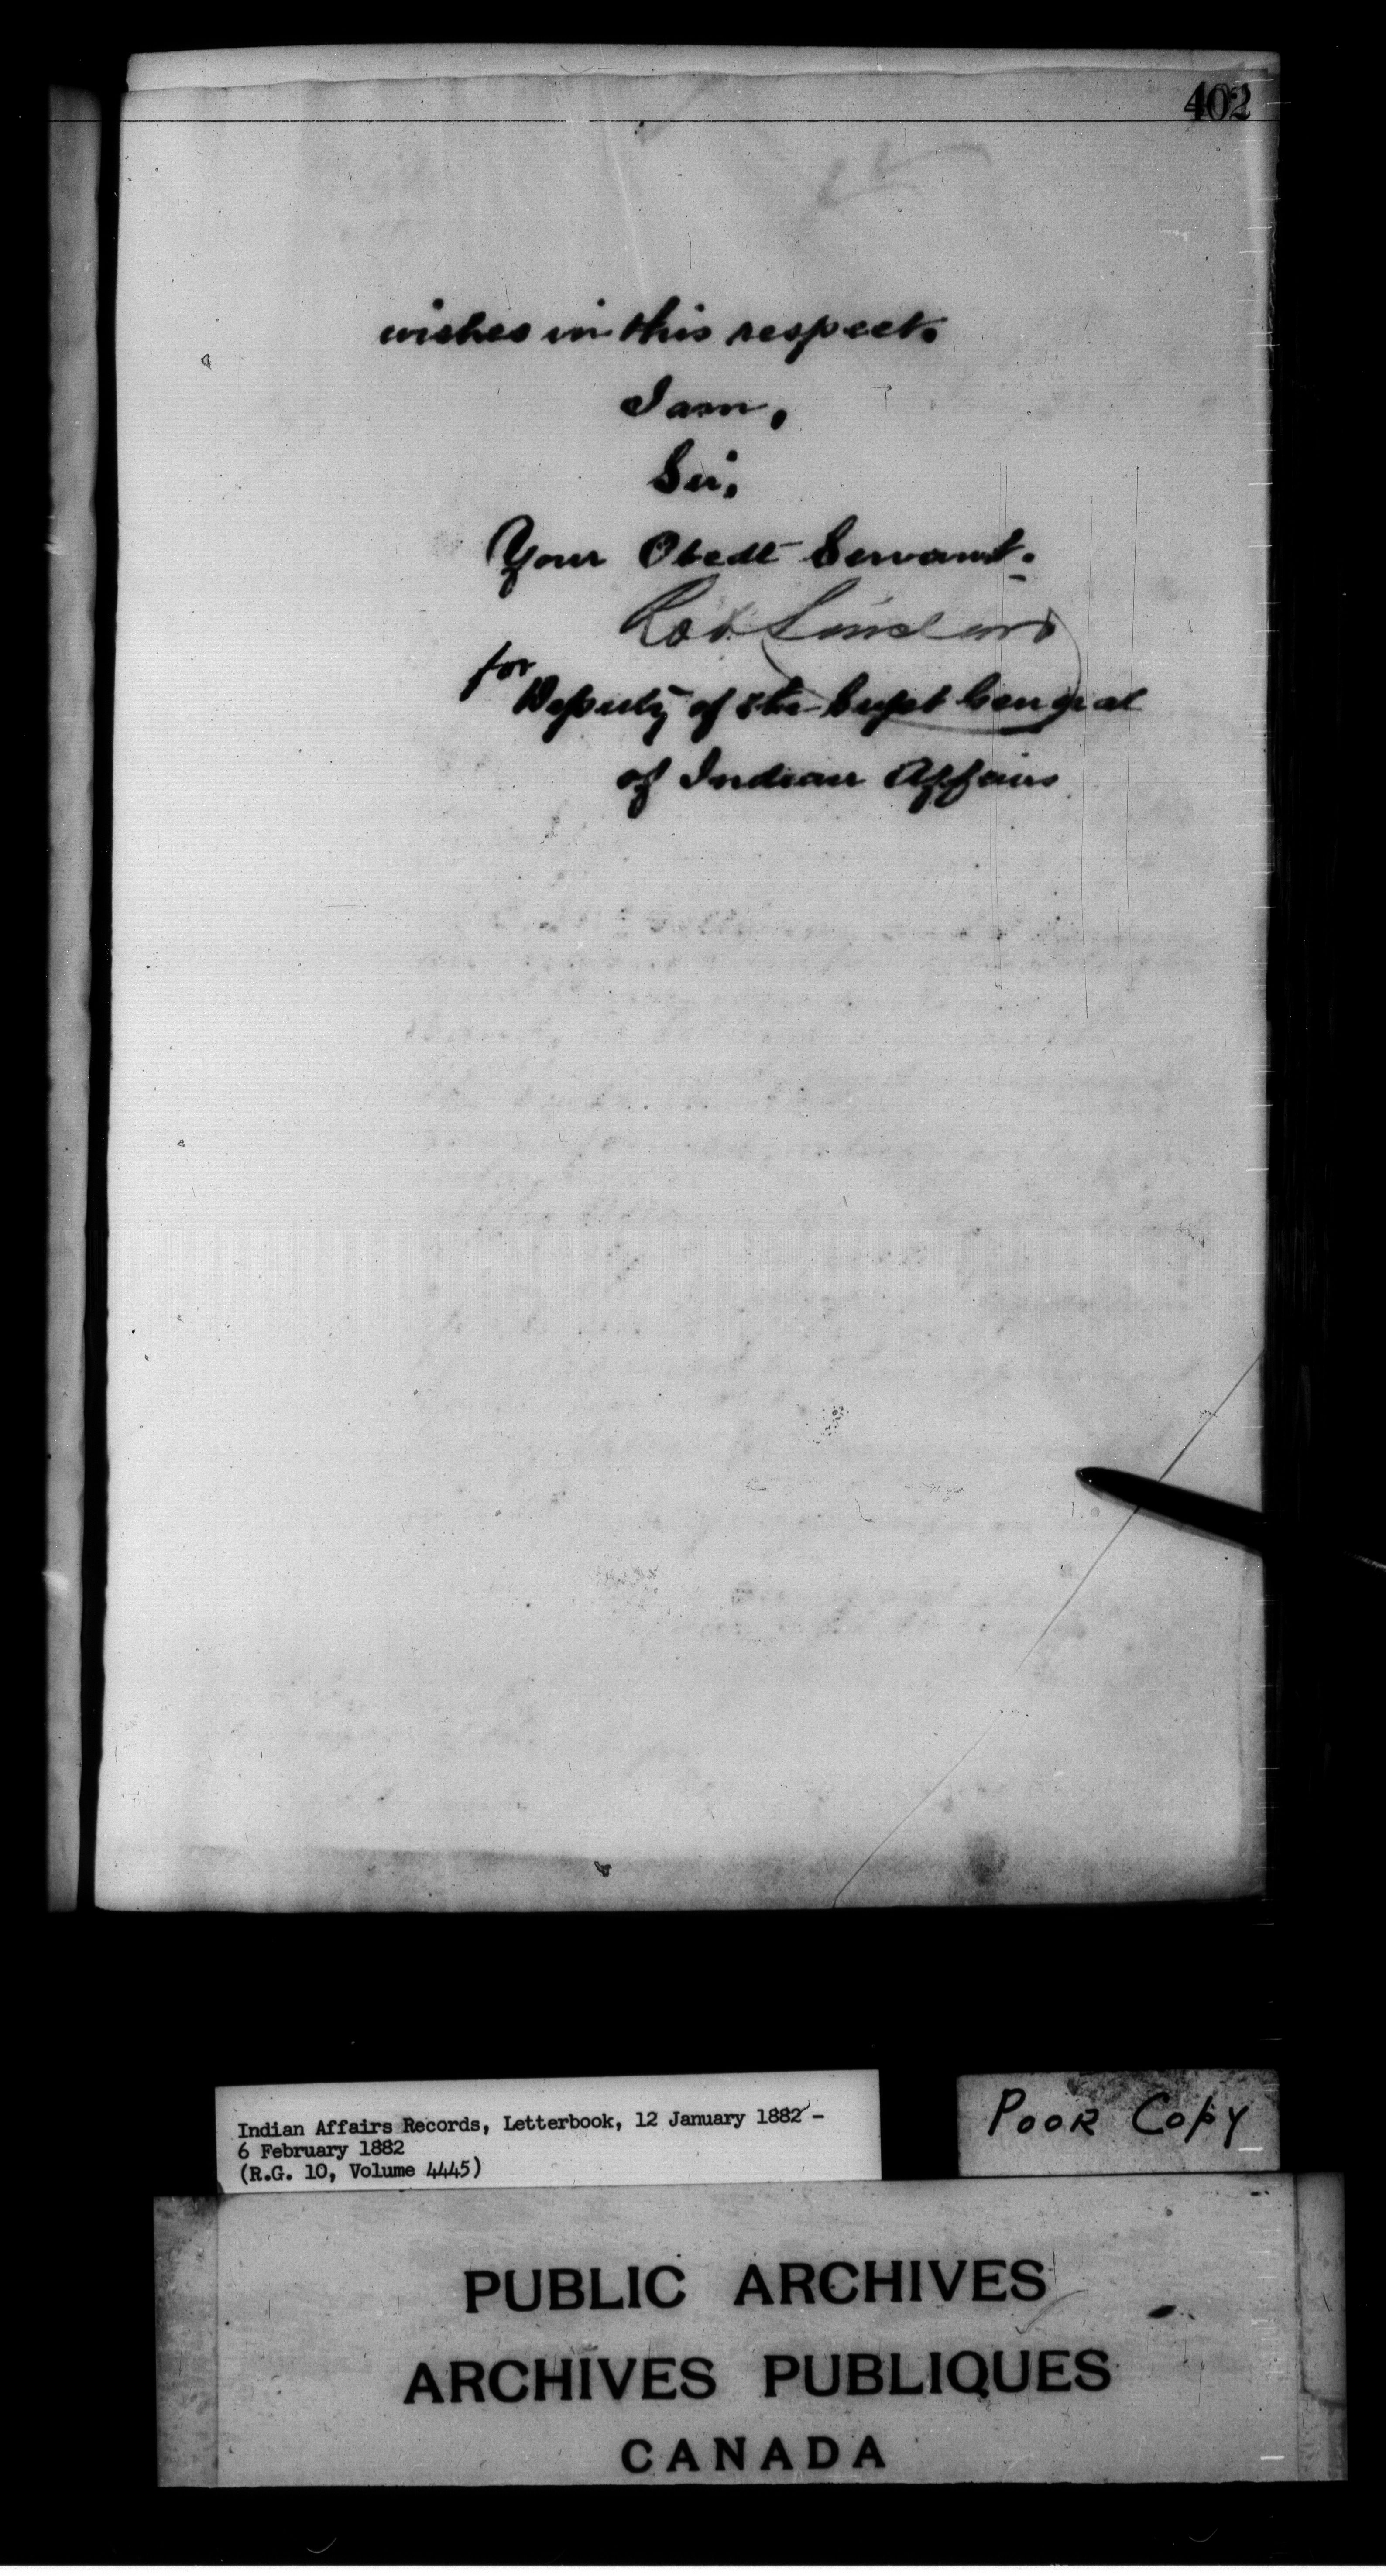 402
wishes in this respect.
I am,
Sir,
Your Obedt Servant.
Rob Sinclair
for
Deputy of the Supt General
of Indian Affairs
Indian Affairs Records, Letterbook, 12 January 1882 -
6 February 1882
(R.G. 10, Volume 4445)
POOR COPY
PUBLIC ARCHIVES
ARCHIVES PUBLIQUES
CANADA